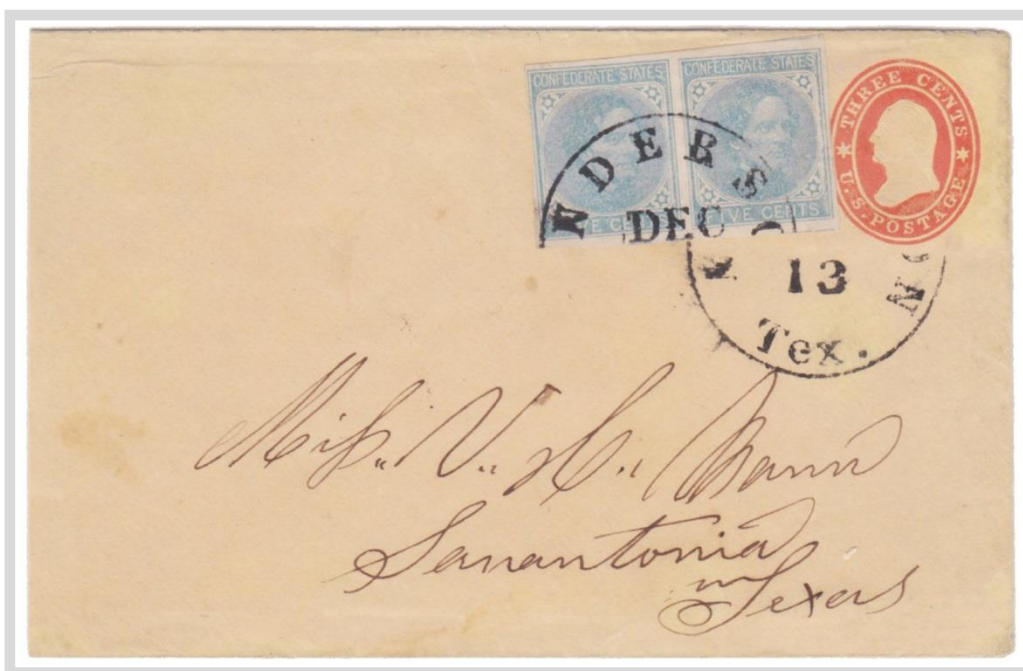 CONFEDERATE STATES CONFEDERATE STATES
VE CE IVE CENTS
THREE CENTS
U.S. POSTAGE
NDERS
DEC
13
N ON
Tex.
Miss. V. H. Mann
Sanantonia
Texas